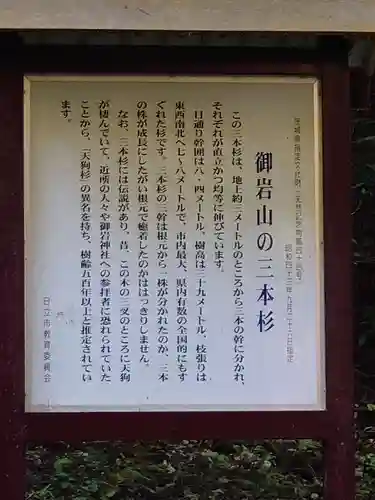 茨城県指定文化財(天然記念物第四十三号)
昭和四十三年九月二十六日指定
御岩山の三本杉
この三本杉は、地上約三メートルのところから三本の幹に分かれ、
それぞれが直立かつ均等に伸びています。
目通り幹囲は八・四メートル、樹高は三十九メートル、枝張りは
東西南北へ七〜八メートルで、市内最大、県内有数の全国的にもす
ぐれた杉です。三本杉の三幹は根元から一株が分かれたのか、三本
の株が成長にしたがい根元で癒着したのかははっきりしません。
なお、三本杉には伝説があり、昔、この木の三叉のところに天狗
が棲んでいて、近所の人々や御岩神社への参拝者に恐れられていた
ことから、「天狗杉」の異名を持ち、樹齢五百年以上と推定されてい
ます。
日立市教育委員会